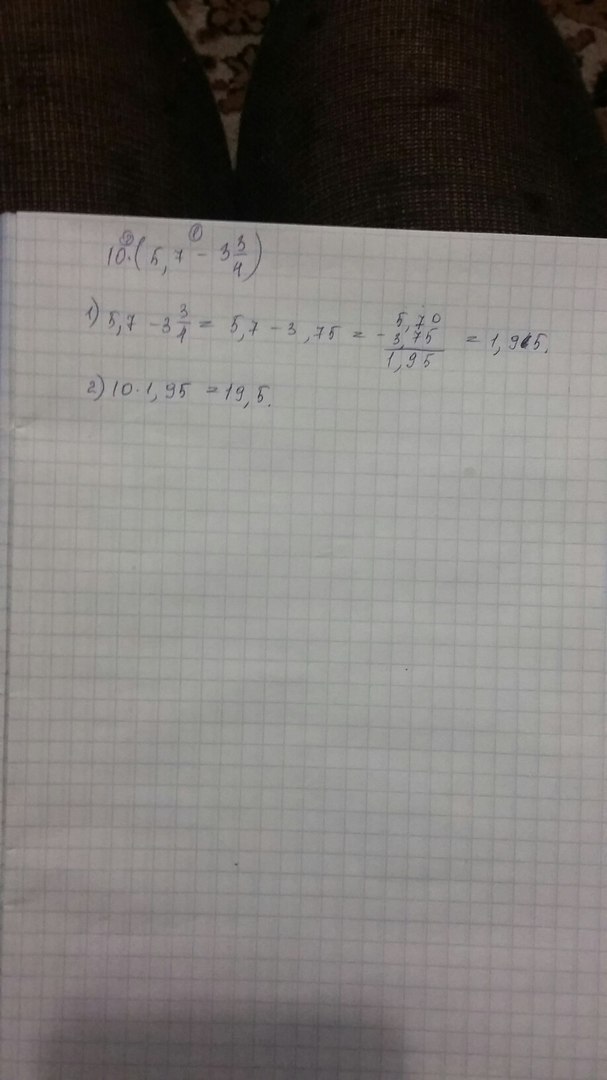 ② ①
10·(5,7 − 3 3/4)
1) 5,7 − 3 3/4 = 5,7 − 3,75 = − 5,70
3,75
1,95 = 1,95.
2) 10·1,95 = 19,5.